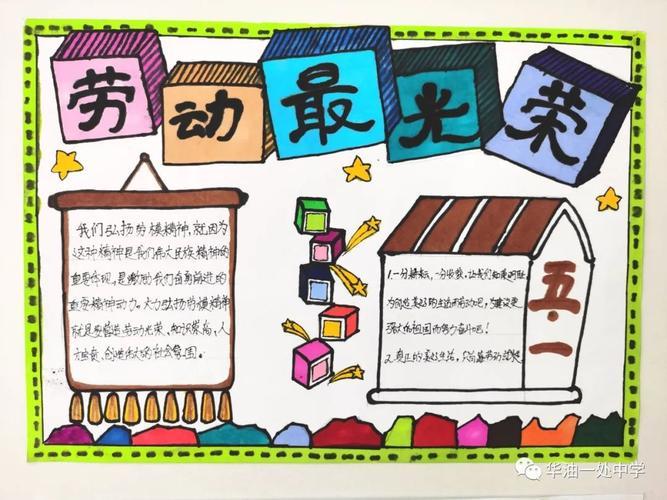 劳动最光荣
我们弘扬劳模精神,就因为
这种精神是我们伟大民族精神的
重要体现,是激励我们奋勇前进的
重要精神动力。大力弘扬劳模精神
就是要营造劳动光荣、知识崇高、人
才宝贵、创造伟大的社会氛围。
五·一
1.一分耕耘,一分收获,让我们
为创造美好的生活而劳动吧,为建设更
强大的祖国而努力奋斗吧!
2.真正的美好生活,只有靠劳动
华油一处中学